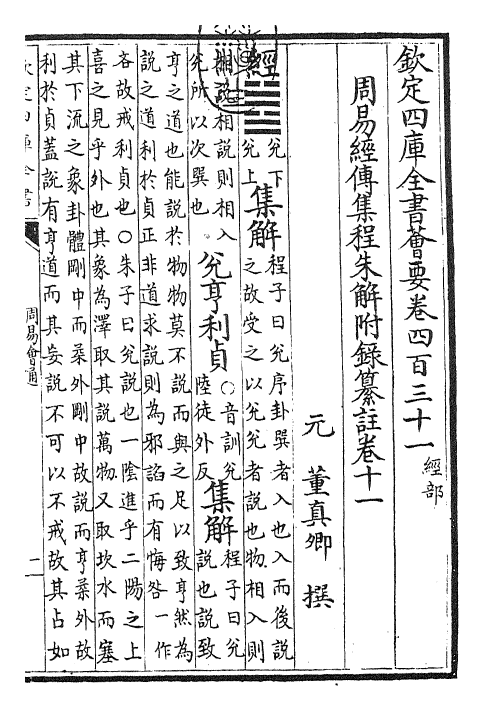 欽定四庫全書薈要卷四百三十一 經部
周易經傳集程朱解附錄纂註卷十一
元 董真卿 撰
經 ䷹ 兌下
兌上
集解
程子曰兌序卦巽者入也入而後説
之故受之以兌兌者説也物相入則
相説相説則相入
兌所以次巽也
兌亨利貞
○音訓兌
陸徒外反
集解
程子曰兌
説也説致
亨之道也能説於物物莫不説而與之足以致亨然為
説之道利於貞正非道求説則為邪諂而有悔咎一作
吝故戒利貞也○朱子曰兌説也一陰進乎二陽之上
喜之見乎外也其象為澤取其説萬物又取坎水而塞
其下流之象卦體剛中而柔外剛中故説而亨柔外故
利於貞蓋説有亨道而其妄説不可以不戒故其占如
欽定四庫全書
周易會通